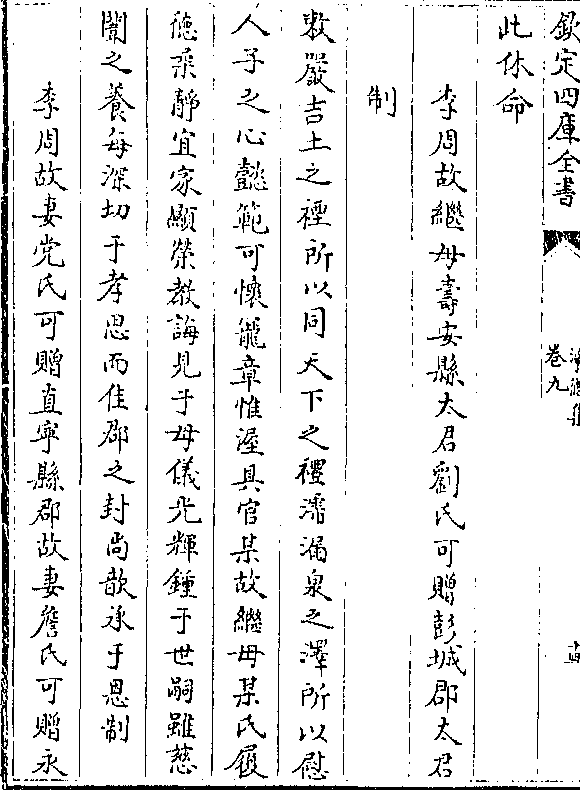 欽定四庫全書
卷九
此休命
李周故繼母壽安縣太君劉氏可贈彭城郡太君
制
敕嚴吉土之禋所以同天下之禮濡漏泉之澤所以慰
人子之心懿範可懷寵章惟渥具官某故繼母某氏履
徳柔靜宜家顯榮教誨見于母儀光輝鍾于世嗣雖慈
闈之養每深切于孝思而佳郡之封尚歆承于恩制
李周故妻党氏可贈直寧縣郡故妻詹氏可贈永